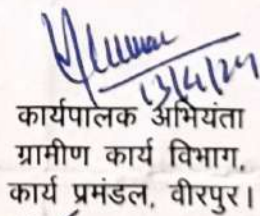 13/4/24
कार्यपालक अभियंता
ग्रामीण कार्य विभाग,
कार्य प्रमंडल, वीरपुर।